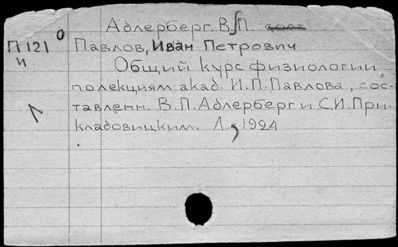 Адлерберг. В.П. сост
П121 о Павлов, Иван Петрович
и Общий курс физиологии
по лекциям акад. И.П.Павлова, сос-
тавленн. В.П.Адлерберг и С.И.При-
кладовицким. Л., 1924